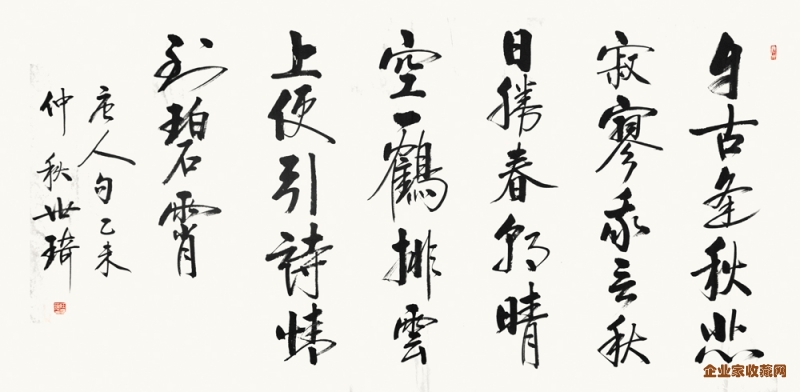 自古逢秋悲
寂寥我言秋
日勝春朝晴
空一鶴排雲
上便引詩情
到碧霄
唐人句乙未
仲秋世琦
企业家收藏网